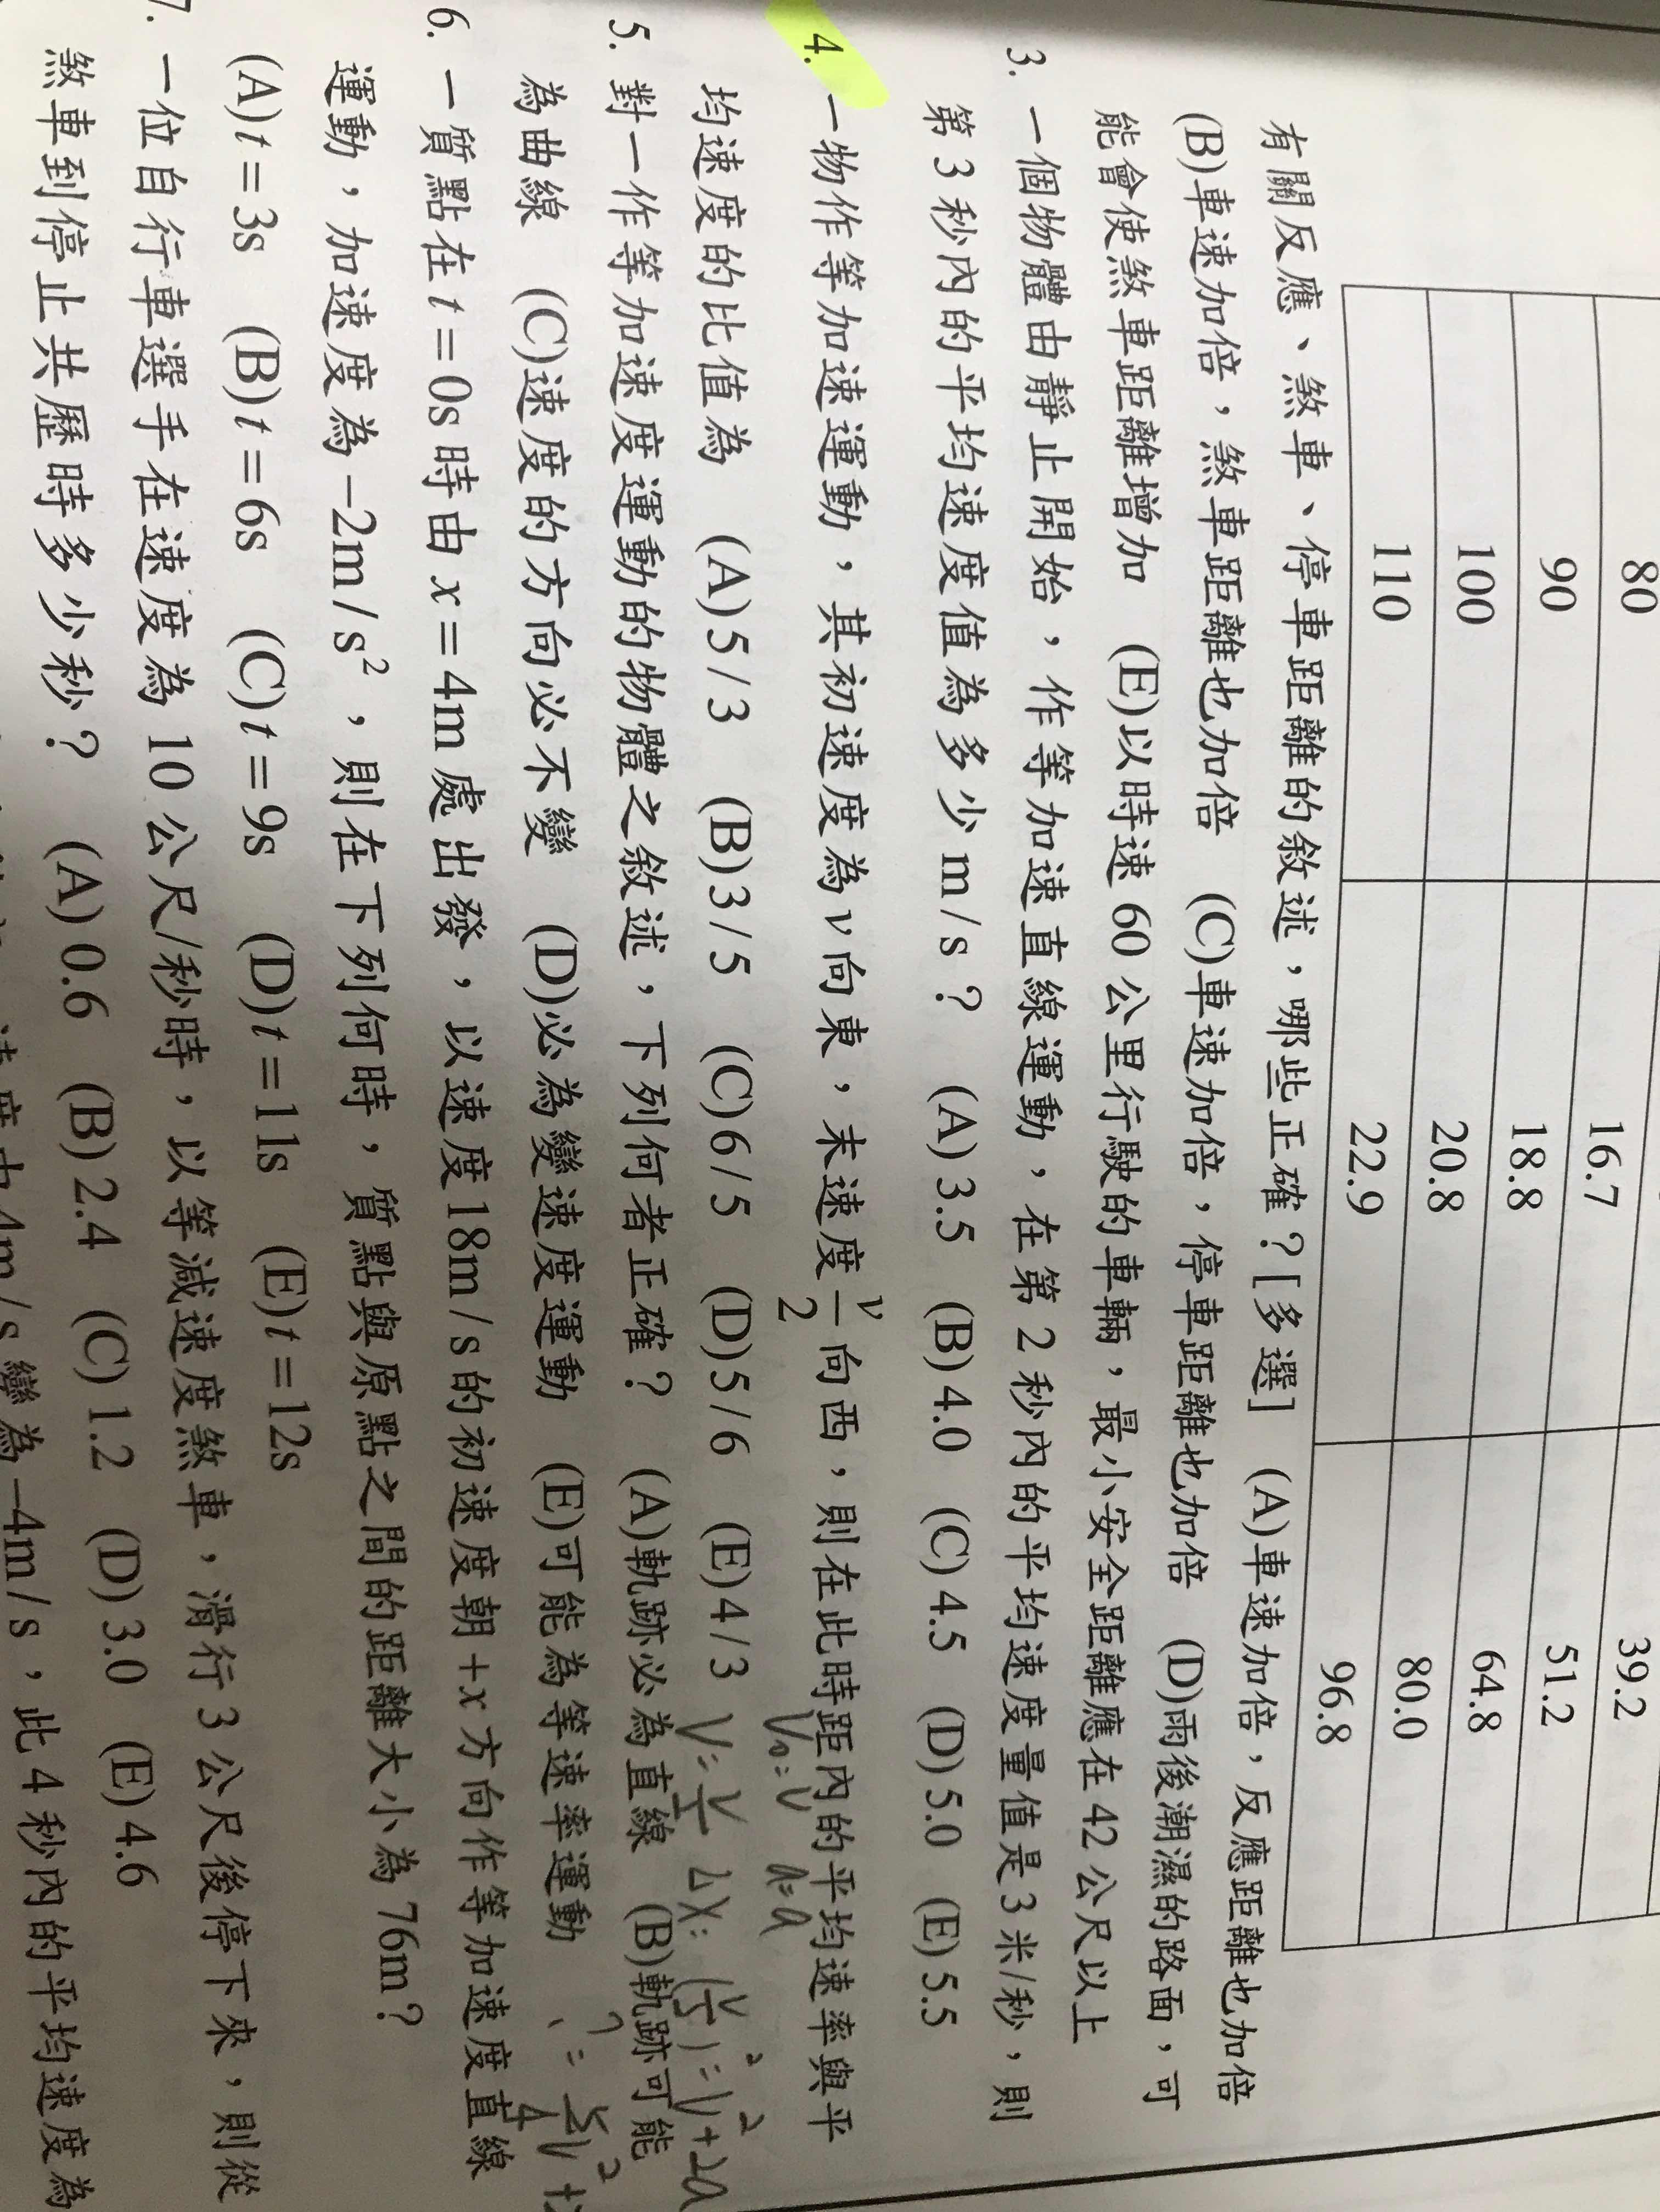 80 16.7 39.2
90 18.8 51.2
100 20.8 64.8
110 22.9 80.0
96.8
有關反應、煞車、停車距離的敘述，哪些正確？[多選] (A)車速加倍，反應距離也加倍
(B)車速加倍，煞車距離也加倍 (C)車速加倍，停車距離也加倍 (D)雨後潮濕的路面，可
能會使煞車距離增加 (E)以時速 60 公里行駛的車輛，最小安全距離應在 42 公尺以上
3. 一個物體由靜止開始，作等加速直線運動，在第 2 秒內的平均速度量值是 3 米/秒，則
第 3 秒內的平均速度值為多少 m/s？ (A) 3.5 (B) 4.0 (C) 4.5 (D) 5.0 (E) 5.5
4. 一物作等加速運動，其初速度為 v 向東，末速度 v/2 向西，則在此時距內的平均速率與平
均速度的比值為 (A) 5/3 (B) 3/5 (C) 6/5 (D) 5/6 (E) 4/3
V₀=V a=a
V=V/2 ΔX: (V/2)²=V²+2a
5. 對一作等加速度運動的物體之敘述，下列何者正確？ (A)軌跡必為直線 (B)軌跡可能
為曲線 (C)速度的方向必不變 (D)必為變速度運動 (E)可能為等速率運動
6. 一質點在 t＝0s 時由 x＝4m 處出發，以速度 18m/s 的初速度朝 +x 方向作等加速度直線
運動，加速度為 −2m/s²，則在下列何時，質點與原點之間的距離大小為 76m？
(A) t＝3s (B) t＝6s (C) t＝9s (D) t＝11s (E) t＝12s
7. 一位自行車選手在速度為 10 公尺/秒時，以等減速度煞車，滑行 3 公尺後停下來，則從
煞車到停止共歷時多少秒？ (A) 0.6 (B) 2.4 (C) 1.2 (D) 3.0 (E) 4.6
速度由 4m/s 變為 −4m/s，此 4 秒內的平均速度為